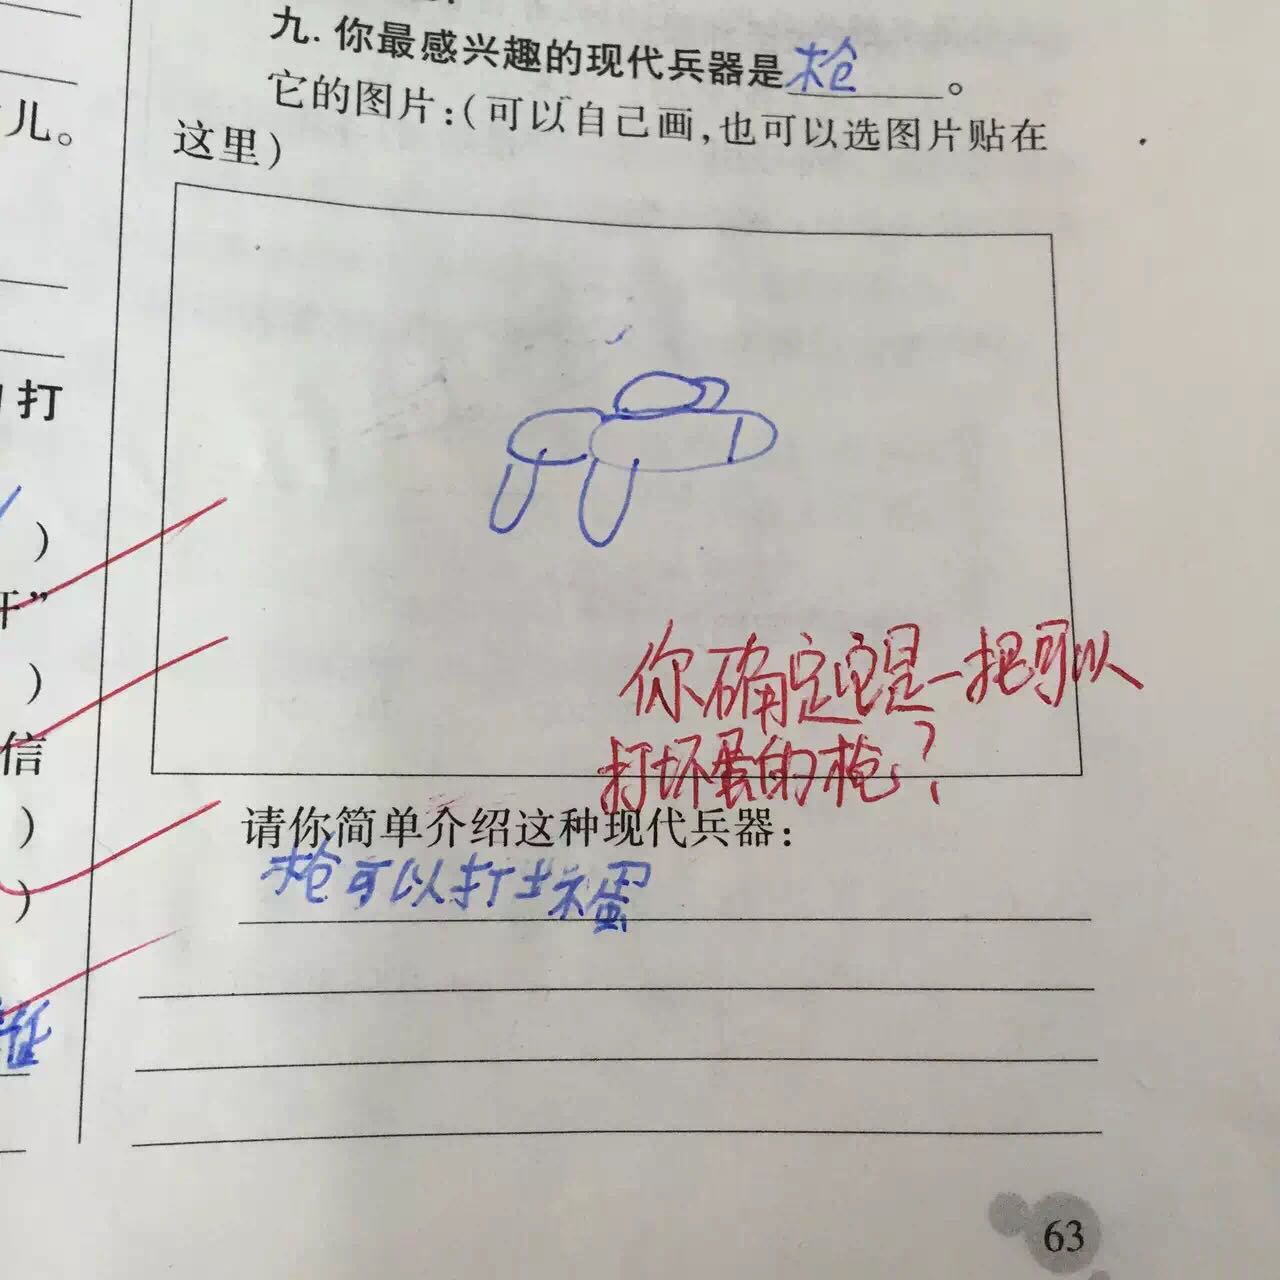 儿。
打
)
开”
)
信
)
)
九.你最感兴趣的现代兵器是枪。
它的图片:(可以自己画,也可以选图片贴在
这里)
你确定它是一把可以
打坏蛋的枪?
请你简单介绍这种现代兵器:
枪可以打坏蛋
63